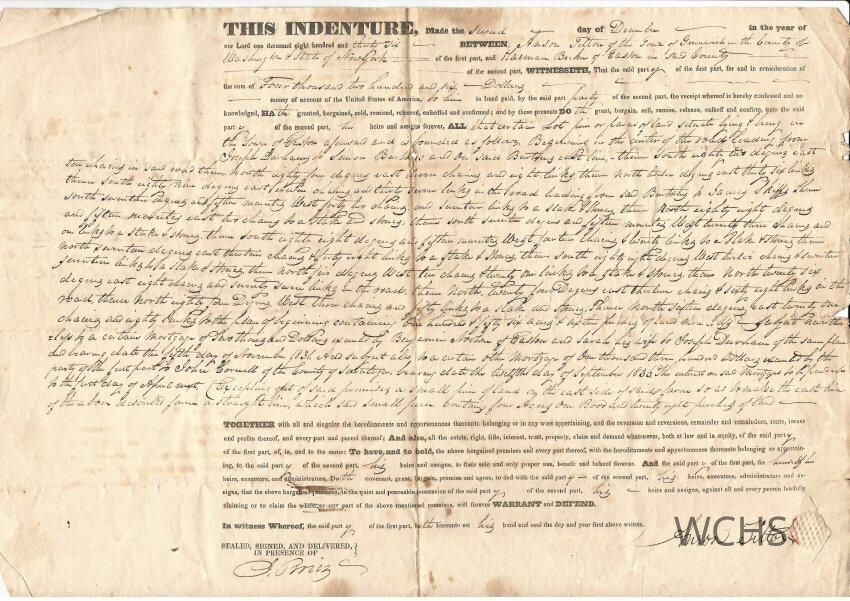 THIS INDENTURE, Made the second day of December in the year of
our Lord one thousand eight hundred and thirty six BETWEEN, Anson Tilton of the Town of Greenwich in the County of
Washington & State of New York of the first part, and Harman Becker of Easton in Said County
of the second part, WITNESSETH, That the said party of the first part, for and in consideration of
the sum of Four thousand two hundred and fifty Dollars
money of account of the United States of America, to him in hand paid, by the said party of the second part, the receipt whereof is hereby confessed and ac-
knowledged, HATH granted, bargained, sold, remised, released, enfeoffed and confirmed; and by these presents DOTH grant, bargain, sell, remise, release, enfeoff and confirm, unto the said
party of the second part, his heirs and assigns forever, ALL that certain Lot piece or parcel of land situate lying & being in
the Town of Easton aforesaid and is bounded as follows, Beginning in the center of the road leading from
Joseph Durhams to Simon and on said east line, thence South eighty two degrees east
ten chains in said road thence north eighty four degrees east seven chains and eight links thence North degrees east thirty six links
thence south eighty nine degrees east eleven chains and thirty seven links in the road leading from said to thence
south seventeen degrees and fifteen minutes West forty two chains and seventeen links to a stake & stones, thence North eighty eight degrees
and fifteen minutes east two chains to a stake and stones, thence south seventeen degrees and fifteen minutes West twenty three chains and
links to a stake & stones, thence south eighty eight degrees and fifteen minutes West fourteen chains & twenty links to a Stake & Stones thence
north seventeen degrees east thirteen chains & forty eight links to a stake & stones, thence south eighty eight degrees West twelve chains & seventeen
links to a Stake & Stones, thence north six degrees West ten chains & twenty one links to a stake & stones, thence North twenty six
degrees east eight chains and seventy seven links in the road, thence North, Twenty four Degrees east thirteen chains & sixty eight links in the
road, thence North eighty four Degrees West three chains and fifty links to a Stake and stones, Thence North sixteen degrees east twenty one
chains and eighty links to the place of beginning containing One hundred & fifty six acres & sixteen perches of land more or less, Subject neverthe-
-less to a certain Mortgage of Two thousand Dollars executed by Benjamin Norton of Easton and Sarah his wife to Joseph Durham of the same place
and bearing date the fifth day of November 1831 And subject also to a certain other Mortgage of One thousand three hundred Dollars executed by the
party of the first part to John Cornell of the County of Saratoga, bearing date the twelfth day of September 1833, The interest on said Mortgages to be paid up
to the first day of April next (Excepting out of said premises a small piece of land on the east side of said farm so as to make the east line
of the above described farm a straight line, which said small piece contains four Acres One Rood and twenty eight perches of land
TOGETHER with all and singular the hereditaments and appurtenances thereunto belonging or in any wise appertaining, and the reversion and reversions, remainder and remainders, rents, issues
and profits thereof, and every part and parcel thereof; And also, all the estate, right, title, interest, trust, property, claim and demand whatsoever, both at law and in equity, of the said party
of the first part, of, in, and to the same: To have and to hold, the above bargained premises and every part thereof, with the hereditaments and appurtenances thereunto belonging or appertain-
ing, to the said party of the second part, his heirs and assigns, to their sole and only proper use, benefit and behoof forever. And the said party of the first part, for himself his
heirs, executors, and administrators, Doth covenant, grant, bargain, promise and agree, to and with the said party of the second part, his heirs, executors, administrators and as-
signs, that the above bargained premises, in the quiet and peaceable possession of the said party of the second part, his heirs and assigns, against all and every person lawfully
claiming or to claim the whole or any part of the above mentioned premises, will forever WARRANT and DEFEND.
In witness Whereof, the said party of the first part, hath hereunto set his hand and seal the day and year first above written.
SEALED, SIGNED, AND DELIVERED,
IN PRESENCE OF
WCHS
Anson Tilton